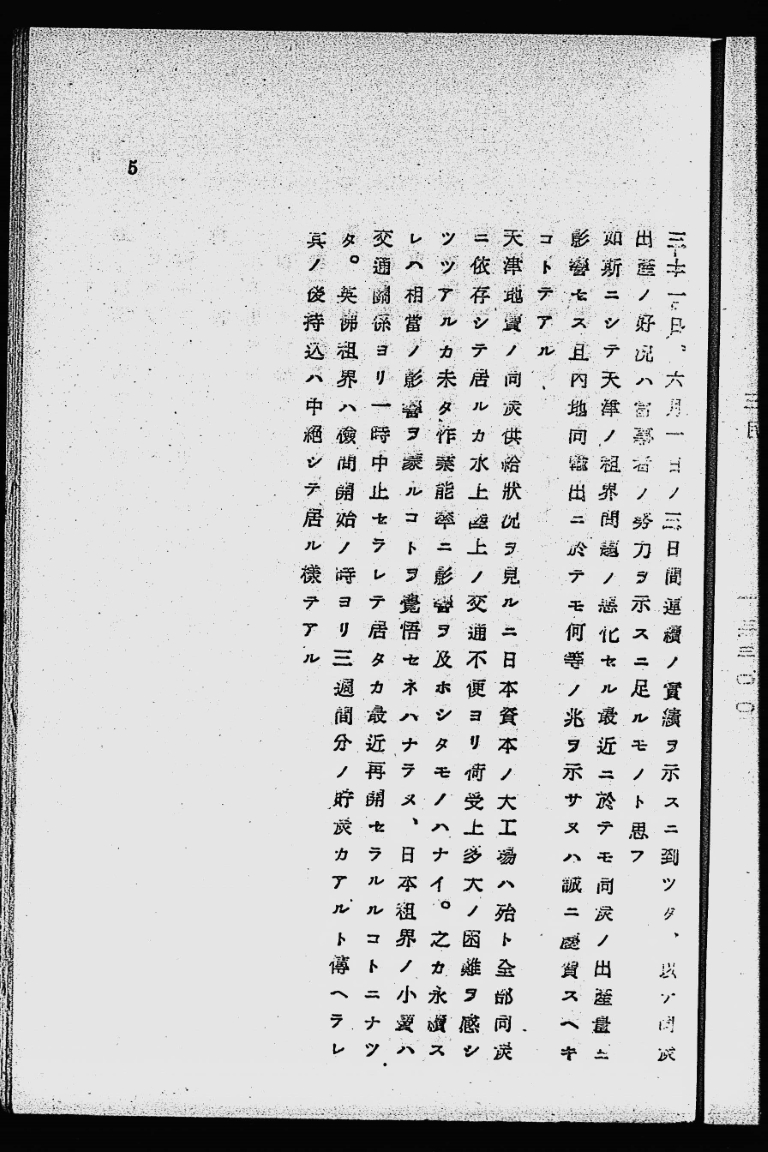 5
三十一日、六月一日ノ三日間連續ノ實績ヲ示スニ到ツタ、以テ同炭
出產ノ好況ハ當事者ノ努力ヲ示スニ足ルモノト思フ
如斯ニシテ天津ノ租界問題ノ惡化セル最近ニ於テモ同炭ノ出產量ニ
影響セス且內地向輸出ニ於テモ何等ノ兆ヲ示サヌハ誠ニ慶賀スヘキ
コトテアル、
天津地賣ノ同炭供給狀況ヲ見ルニ日本資本ノ大工場ハ殆ト全部同炭
ニ依存シテ居ルカ水上陸上ノ交通不便ヨリ荷受上多大ノ困難ヲ感シ
ツツアルカ未タ作業能率ニ影響ヲ及ホシタモノハナイ。之カ永續ス
レハ相當ノ影響ヲ蒙ルコトヲ覺悟セネハナラヌ、日本租界ノ小賣ハ
交通關係ヨリ一時中止セラレテ居タカ最近再開セラルルコトニナツ
タ。英佛租界ハ檢問開始ノ時ヨリ三週間分ノ貯炭カアルト傳ヘラレ
其ノ後持込ハ中絕シテ居ル樣テアル